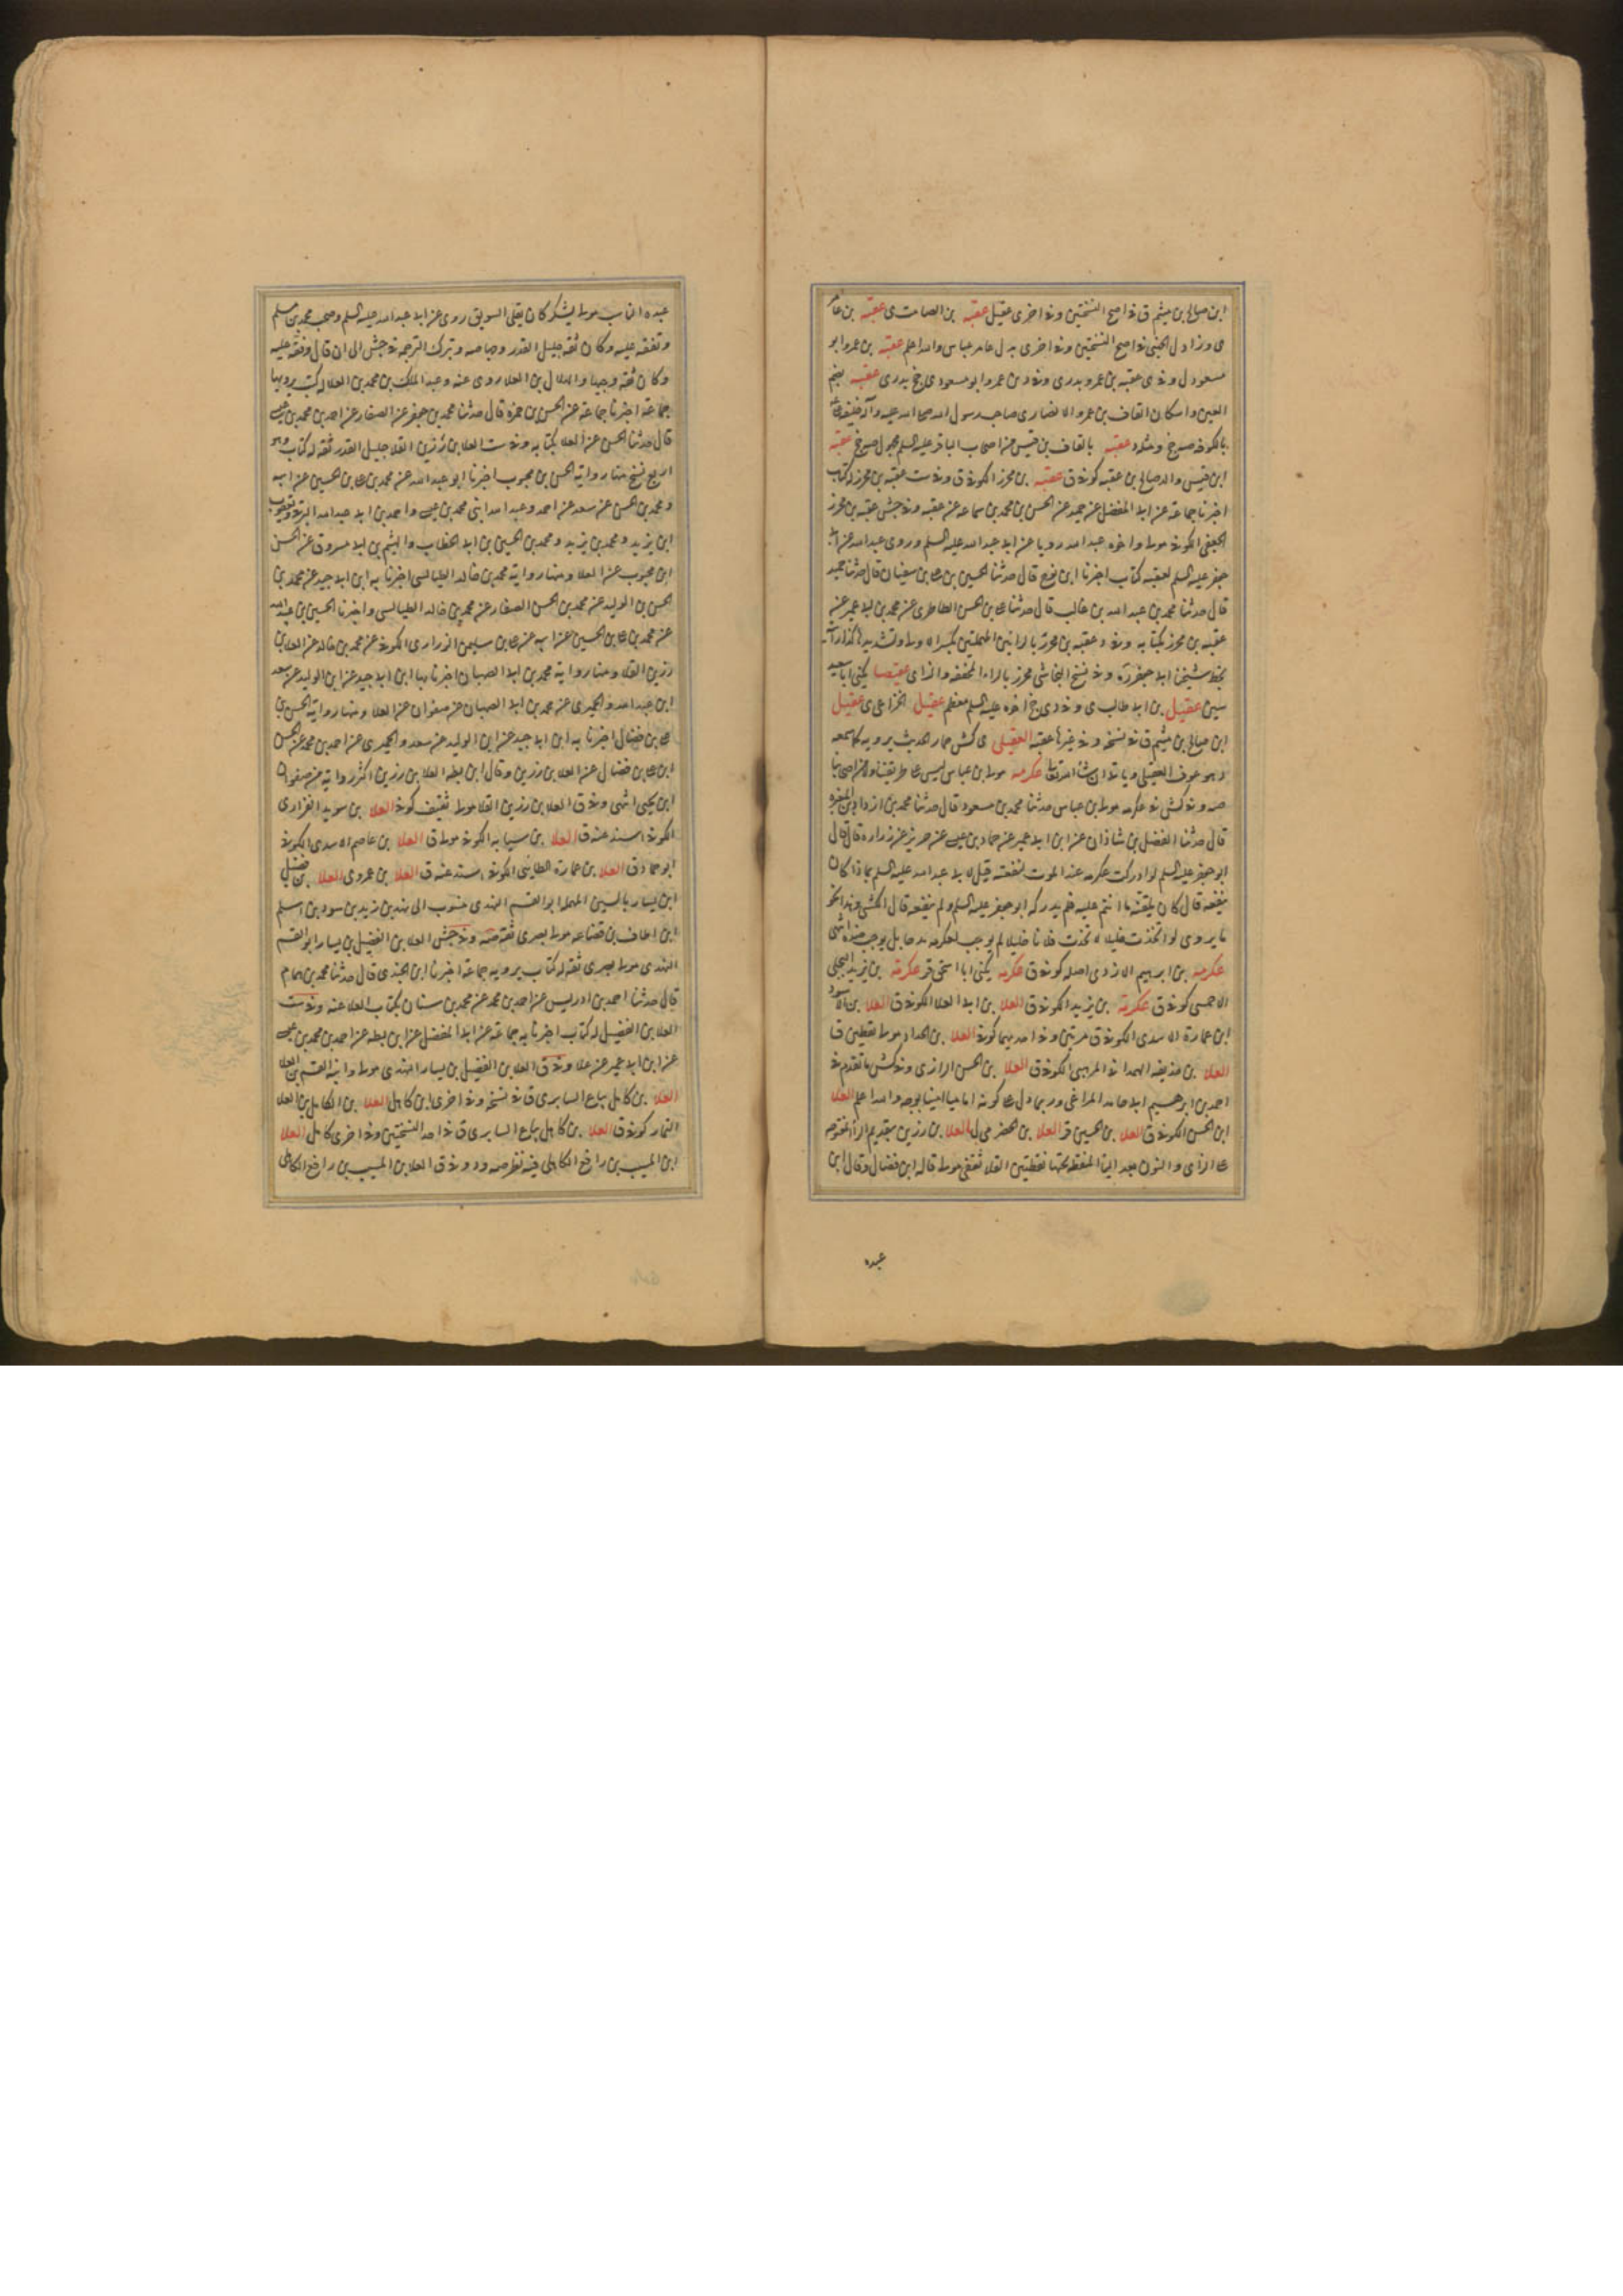 ابن صالح بن ميثم ق فى اصح النسختين وفى اخرى عقيل عقبه بن الصامت ى عقبه بن عامر
ى وزاد ل الجهنى فى اصح النسختين وفى اخرى بدل عامر عباس والله اعلم عقبه بن عمرو ابو
مسعود ل وفى ى عقبه بن عمرو بدرى وفى د بن عمرو ابو مسعود ى خ بدرى عقبه بضم
العين واسكان القاف بن عمرو الانصارى صاحب رسول الله صلى الله عليه وآله خليفة على
بالكوفه صه خ ومثله د عقبه بالقاف بن قيس من اصحاب الباقر عليه السلم مجهول صه خ عقبه
ابن قيس والد صالح بن عقبه كوفى ق عقبه بن محرز الكوفى ق وفى ست عقبة بن محرز له كتاب
اخبرنا جماعة عن ابى المفضل عن حميد عن الحسن بن محمد بن سماعة عن عقبه وفى جش عقبه بن محرز
الجعفى الكوفى مولى واخوه عبد الله رويا عن ابى عبد الله عليه السلم وروى عبد الله عن ابى
جعفر عليه السلم لعقبه كتاب اخبرنا ابن نوح قال حدثنا الحسين بن على بن سفيان قال حدثنا حميد
قال حدثنا محمد بن عبد الله بن غالب قال حدثنا على بن الحسن الطاطرى عن محمد بن ابى عمير عن
عقبه بن محرز بكتابه وفى د عقبه بن محرز بالرائين المهملتين بكسر الاولى وتشديدها كذا رايته
بخط شيخنا ابى جعفر ره وفى نسخ النجاشى محرز بالراء المخففه والزاى عقيصا يكنى ابا سعيد
سين عقيل بن ابى طالب ى وفى د ى خ اخوه عليه السلم معظم عقيل الخزاعى ى عقيل
ابن صالح بن ميثم ق فى نسخه وفى غيرها عقبه العقيلى ى كش حمار لحديث يرويه كما سمعه
وهو عوف العقيلى وياتى ان شاء الله تعالى عكرمه مولى بن عباس ليس على طريقتنا ولا من اصحابنا
صه وفى كش فى عكرمه مولى بن عباس حدثنا محمد بن مسعود قال حدثنا محمد بن ازداد بن المغيره
قال حدثنا الفضل بن شاذان عن ابن ابى عمير عن حماد بن عيسى عن حريز عن زراره قال قال
ابو جعفر عليه السلم لو ادركت عكرمه عند الموت لنفعته قيل لابى عبد الله عليه السلم بماذا كان
ينفعه قال كان يلقنه ما انتم عليه فلم يدركه ابو جعفر عليه السلم ولم ينفعه قال الكشى وهذا نحو
ما يروى لو اتخذت خليلا لاتخذت فلانا خليلا لم يوجب لعكرمه مدحا بل يوجب ضده انتهى
عكرمه بن ابرهيم الازدى اصله كوفى ق عكرمه يكنى ابا اسحق قر عكرمه بن يزيد البجلى
الاحمسى كوفى ق عكرمة بن يزيد الكوفى ق العلا بن ابى العلا الكوفى ق العلا بن الاسود
ابن عمارة الاسدى الكوفى ق مرتين وفى احديهما كوفى العلا بن الحداد مولى يقطين ق
العلا بن حذيفه الهمدانى المرهبى الكوفى ق العلا بن الحسن الرازى وفى كش ما تقدم فى
احمد بن ابرهيم ابى حامد المراغى وربما دل على كونه اماميا امينا بوجه والله اعلم العلا
ابن الحسن الكوفى ق العلا بن الحسين قر العلا بن الحضرمى ل العلا بن رزين بتقديم الراء المفتوحه
على الزاى والنون بعد الياء المنقطه تحتها نقطتين القلا ثقفى مولى قاله ابن فضال وقال ابن
عبده
عبده الناب مولى يشكر كان يقلى السويق روى عن ابى عبد الله عليه السلم وصحب محمد بن مسلم
وتفقه عليه وكان ثقه جليل القدر وجها صه وترك الترجمه فى جش الى ان قال وتفقه عليه
وكان ثقه وجها والهلال بن العلا روى عنه وعبد الملك بن محمد بن العلا له كتب يرويها
جماعة اخبرنا جماعة عن الحسن بن حمزه قال حدثنا محمد بن جعفر عن الصفار عن احمد بن محمد بن عيسى
قال حدثنا الحسن عن العلا بكتابه وفى ست العلا بن رزين القلا جليل القدر ثقه له كتاب وهو
اربع نسخ منها رواية الحسن بن محبوب اخبرنا ابو عبد الله عن محمد بن على بن الحسين عن ابيه
ومحمد بن الحسن عن سعد عن احمد وعبد الله ابنى محمد بن عيسى واحمد بن ابى عبد الله البرقى ويعقوب
ابن يزيد ومحمد بن يزيد ومحمد بن الحسين بن ابى الخطاب والهيثم بن ابى مسروق عن الحسن
ابن محبوب عن العلا ومنها رواية محمد بن خالد الطيالسى اخبرنا به ابن ابى جيد عن محمد بن
الحسن بن الوليد عن محمد بن الحسن الصفار عن محمد بن خالد الطيالسى واخبرنا الحسين بن عبيد الله
عن محمد بن على بن الحسين عن ابيه عن على بن سليمن الزرارى الكوفى عن محمد بن خالد عن العلا بن
رزين القلا ومنها رواية محمد بن ابى الصهبان اخبرنا بها ابن ابى جيد عن ابن الوليد عن سعد
ابن عبد الله والحميرى عن محمد بن ابى الصهبان عن صفوان عن العلا ومنها رواية الحسن بن
على بن فضال اخبرنا به ابن ابى جيد عن ابن الوليد عن سعد والحميرى عن احمد بن محمد عن الحسن
ابن على بن فضال عن العلا بن رزين وقال ابن بطه العلا بن رزين اكثر رواية من صفوان
ابن يحيى انتهى وفى ق العلا بن رزين القلا مولى ثقيف كوفى العلا بن سويد الفزارى
الكوفى اسند عنه ق العلا بن سيابه الكوفى مولى ق العلا بن عاصم الاسدى الكوفى
ابو حماد ق العلا بن عمارة الطاينى الكوفى اسند عنه ق العلا بن عمرو ى العلا بن فضيل
ابن يسار بالسين المهمله ابو القسم النهدى منسوب الى نهد بن زيد بن سود بن اسلم
ابن الحاف بن قضاعه مولى بصرى ثقه صه وفى جش العلا بن الفضيل بن يسار ابو القسم
النهدى مولى بصرى ثقه له كتاب يرويه جماعة اخبرنا ابن الجندى قال حدثنا محمد بن همام
قال حدثنا احمد بن ادريس عن احمد بن محمد عن محمد بن سنان بكتاب العلا عنه وفى ست
العلا بن الفضيل له كتاب اخبرنا به جماعة عن ابى المفضل عن ابن بطه عن احمد بن محمد بن عيسى
عن ابن ابى عمير عن علا وفى ق العلا بن الفضيل بن يسار النهدى مولى وابنه القسم بن العلا
العلا بن كامل بياع السابرى ق فى نسخه وفى اخرى ابن كاهل العلا بن الكامل بن العلا
التمار كوفى ق العلا بن كاهل بياع السابرى ق فى احد النسختين وفى اخرى كامل العلا
ابن المسيب بن رافع الكاهلى فيه نظر صه د وفى ق العلا بن المسيب بن رافع الكاهلى